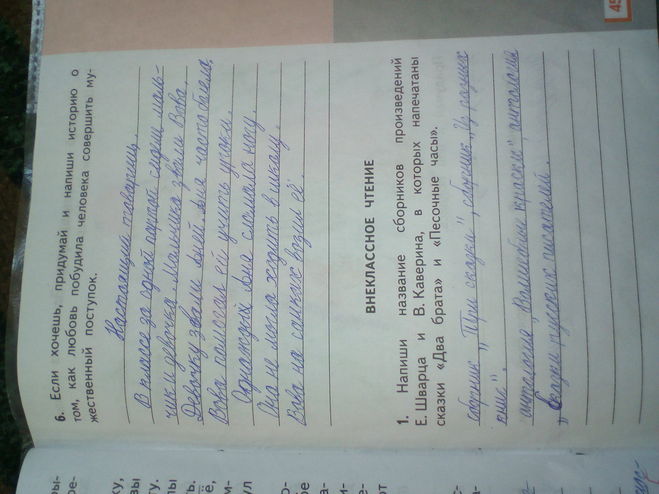 6. Если хочешь, придумай и напиши историю о
том, как любовь побудила человека совершить му-
жественный поступок.
Настоящий товарищ.
В классе за одной партой сидели маль-
чик и девочка. Мальчика звали Вова,
Девочку звали Аней. Аня часто болела,
Вова помогал ей учить уроки.
Однажды Аня сломала ногу.
Она не могла ходить в школу.
Вова на санках возил её.
ВНЕКЛАССНОЕ ЧТЕНИЕ
1. Напиши название сборников произведений
Е. Шварца и В. Каверина, в которых напечатаны
сказки «Два брата» и «Песочные часы».
сборник „Три сказки", сборник „Из разных
книг".
антология „Волшебны краски", антология
„Сказки русских писателей.
45